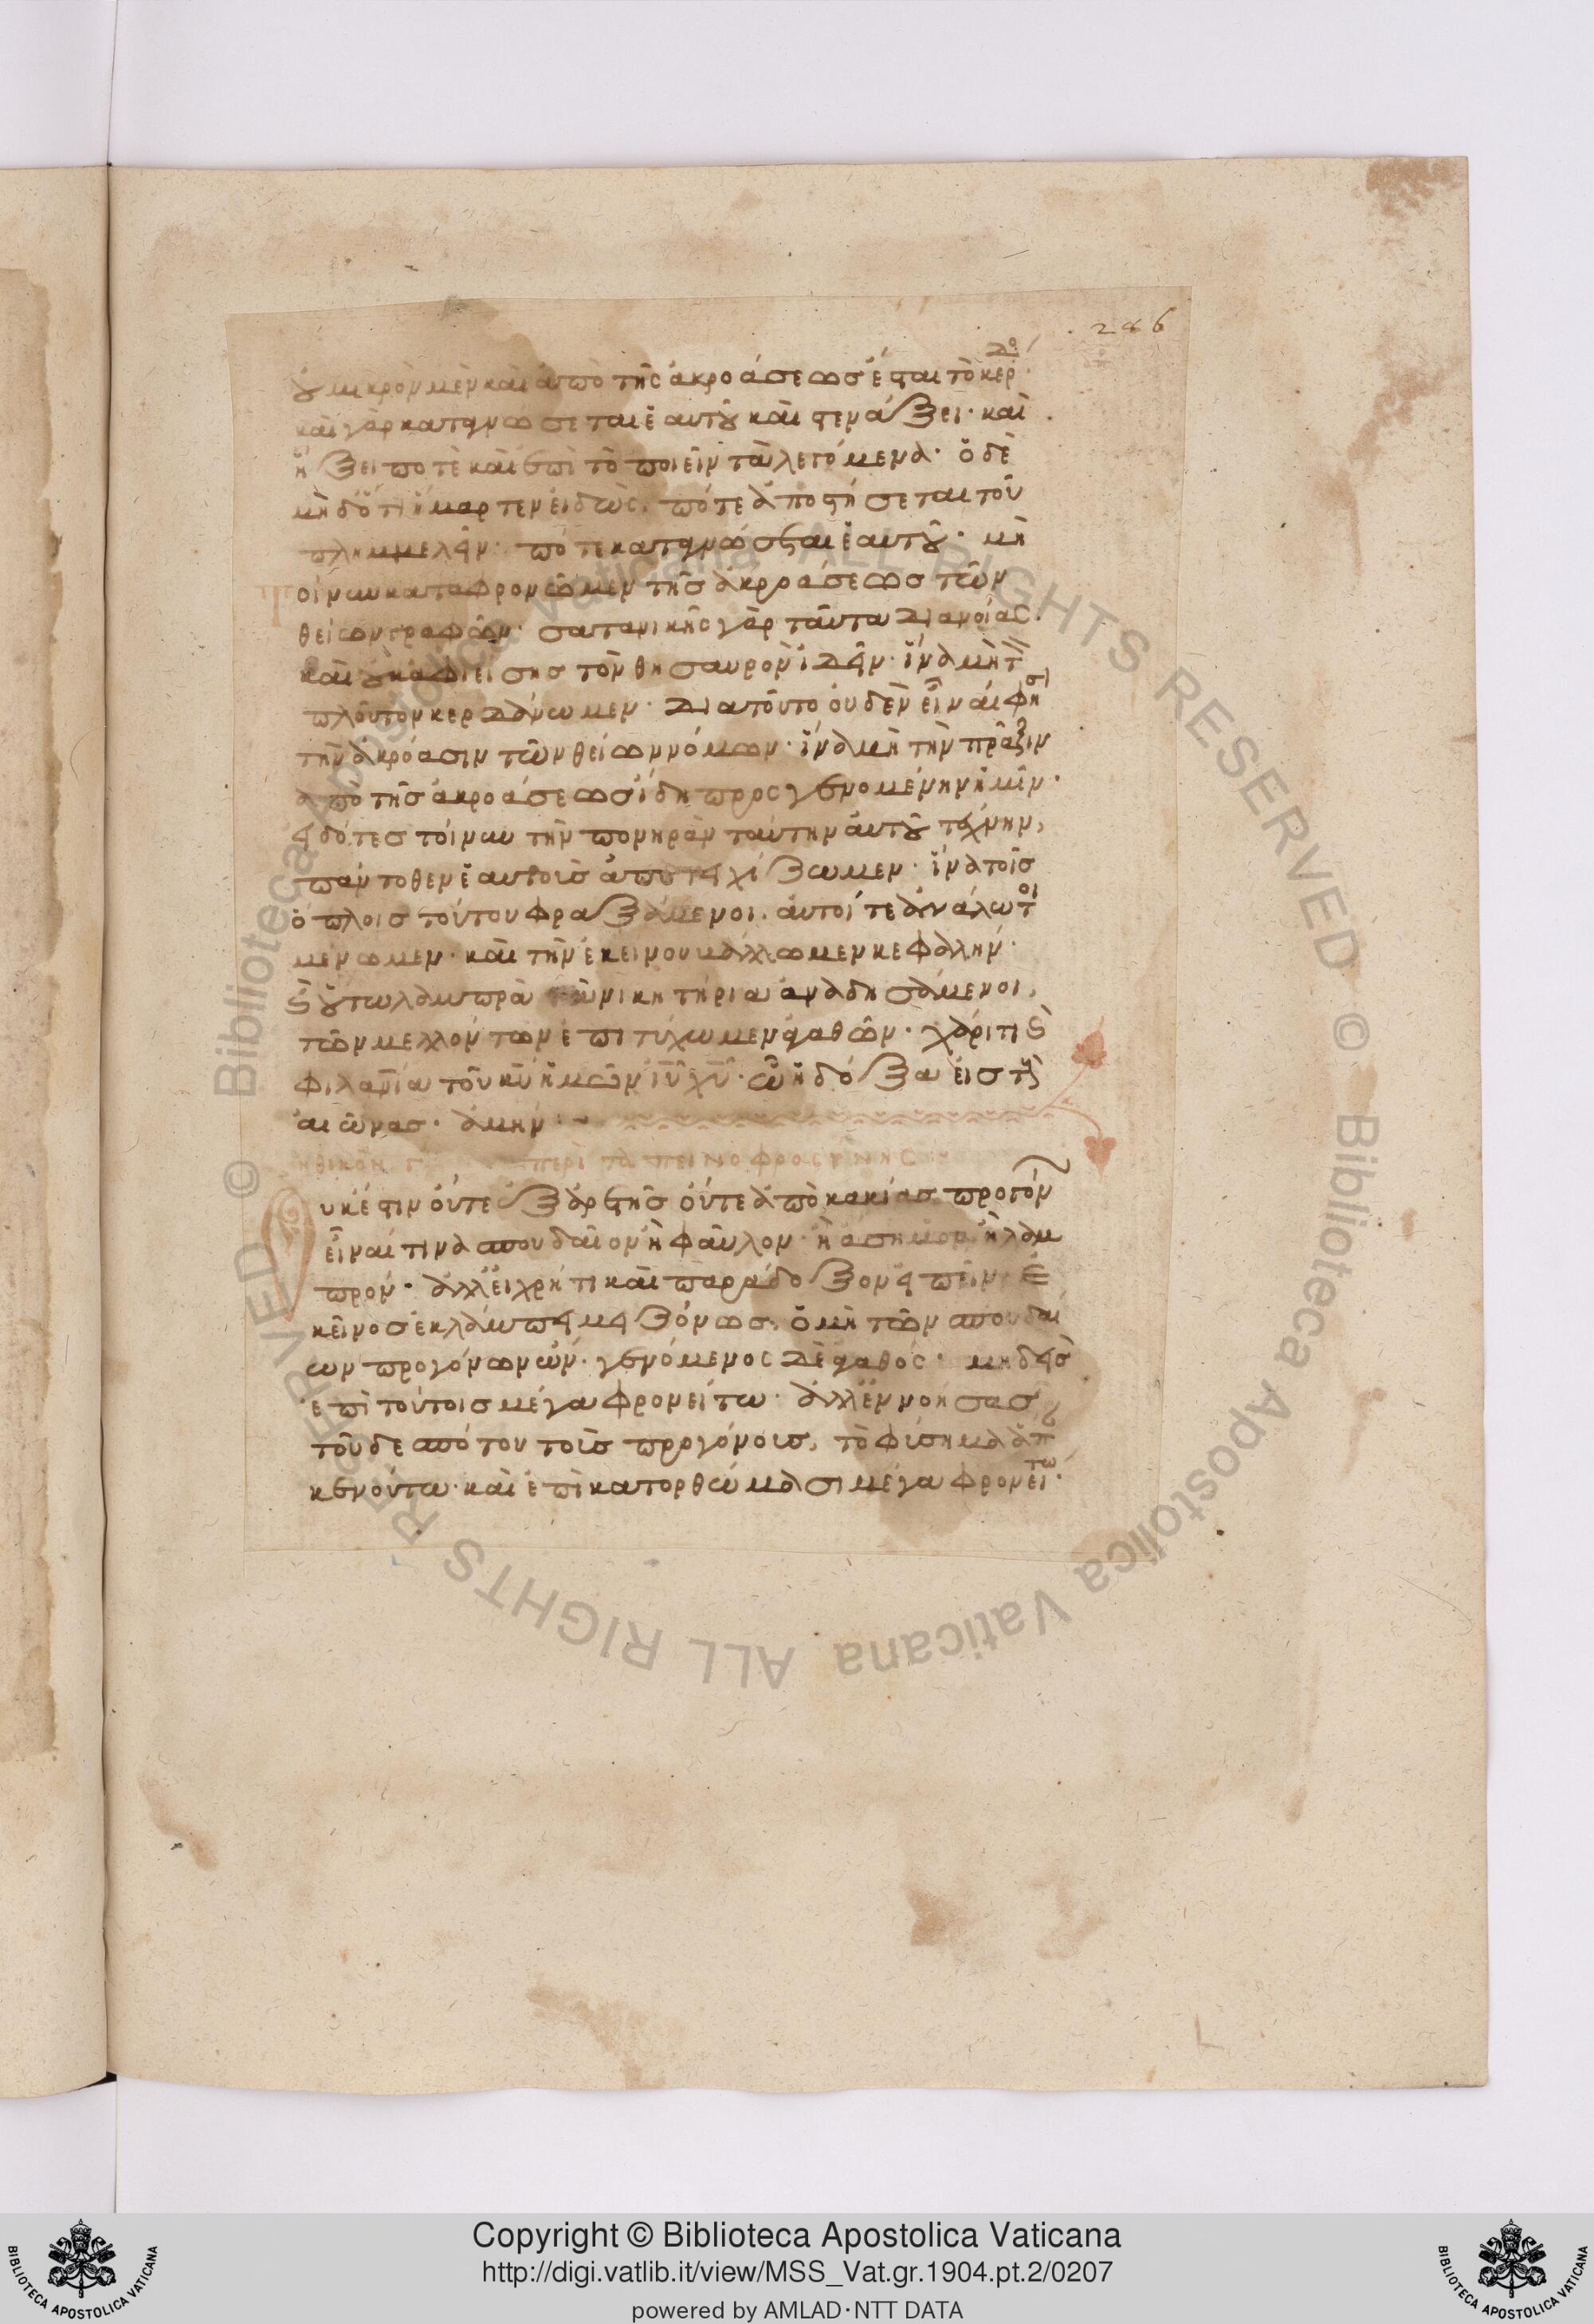 286
οὐ μικρὸν μὲν καὶ ἀπὸ τῆς ἀκροάσεως ἔσται τὸ κέρδο
καὶ γὰρ καταγνώσεται ἑαυτοῦ καὶ στενάξει· καὶ
ἥξει ποτὲ καὶ ἐπὶ τὸ ποιεῖν τὰ λεγόμενα· ὁ δὲ
μηδ' ὅτι ἥμαρτεν εἰδὼς, πότε ἀποστήσεται τοῦ
πλημμελεῖν· πότε καταγνώσεται ἑαυτοῦ· μὴ
τοίνυν καταφρονῶμεν τῆς ἀκροάσεως τῶν
θείων γραφῶν· σατανικῆς γὰρ ταῦτα διανοίας.
καὶ οὐκ ἀφιείσης τὸν θησαυρὸν ἰδεῖν· ἵνα μὴ τ
πλοῦτον κερδάνωμεν· διατοῦτο οὐδὲν εἶναί φησι
τὴν ἀκρόασιν τῶν θείων νόμων· ἵνα μὴ τὴν πρᾶξιν
ἀπὸ τῆς ἀκροάσεως ἴδη προσγενομένην ἡμῖν·
εἰδότες τοίνυν τὴν πονηρὰν ταύτην αὐτοῦ τέχνην,
πάντοθεν ἑαυτοὺς ἀποτειχίζωμεν· ἵνα τοῖς
ὅπλοις τούτου φραξάμενοι. αὐτοί τε ἀνάλωτοι
μένωμεν· καὶ τὴν ἐκείνου κεφαλήν·
καὶ οὕτω λαμπρὰ τὰ νικητήρια ἀναδησάμενοι,
τῶν μελλόντων ἐπιτύχωμεν ἀγαθῶν· χάριτι καὶ
φιλανία τοῦ κυ ἡμῶν ιυ χυ· ὧ ἡ δόξα εἰς τοὺς
αἰῶνας· ἀμήν·
ἠθικὸν περὶ ταπεινοφροσύνης
Οὐκέστιν οὔτε ἐξ ἀρετῆς οὔτε ἀπὸ κακίας προγόν
εἶναί τινα σπουδαῖον ἢ φαῦλον· ἢ ἄσημον ἢ λαμ
πρόν· ἀλλ' εἰ χρή τι καὶ παράδοξον εἰπεῖν· ἐ
κεῖνος ἐκλάμπει μειζόνως, ὁ μὴ τῶν σπουδαί
ων προγόνων ὤν· γενόμενος δὲ ἀγαθός· μηδεὶς
ἐπὶ τούτοις μέγα φρονείτω· ἀλλ' ἐννοήσας
τοῦ δεσπότου τοὺς προγόνους, τὸ φύσημα ἅπ
κενούτω· καὶ ἐπὶ κατορθώμασι μέγα φρονείτω·
Copyright © Biblioteca Apostolica Vaticana
http://digi.vatlib.it/view/MSS_Vat.gr.1904.pt.2/0207
powered by AMLAD·NTT DATA
BIBLIOTECA APOSTOLICA VATICANA
BIBLIOTECA APOSTOLICA VATICANA
© Biblioteca Apostolica Vaticana ALL RIGHTS RESERVED © Biblioteca Apostolica Vaticana ALL RIGHTS RESERVED